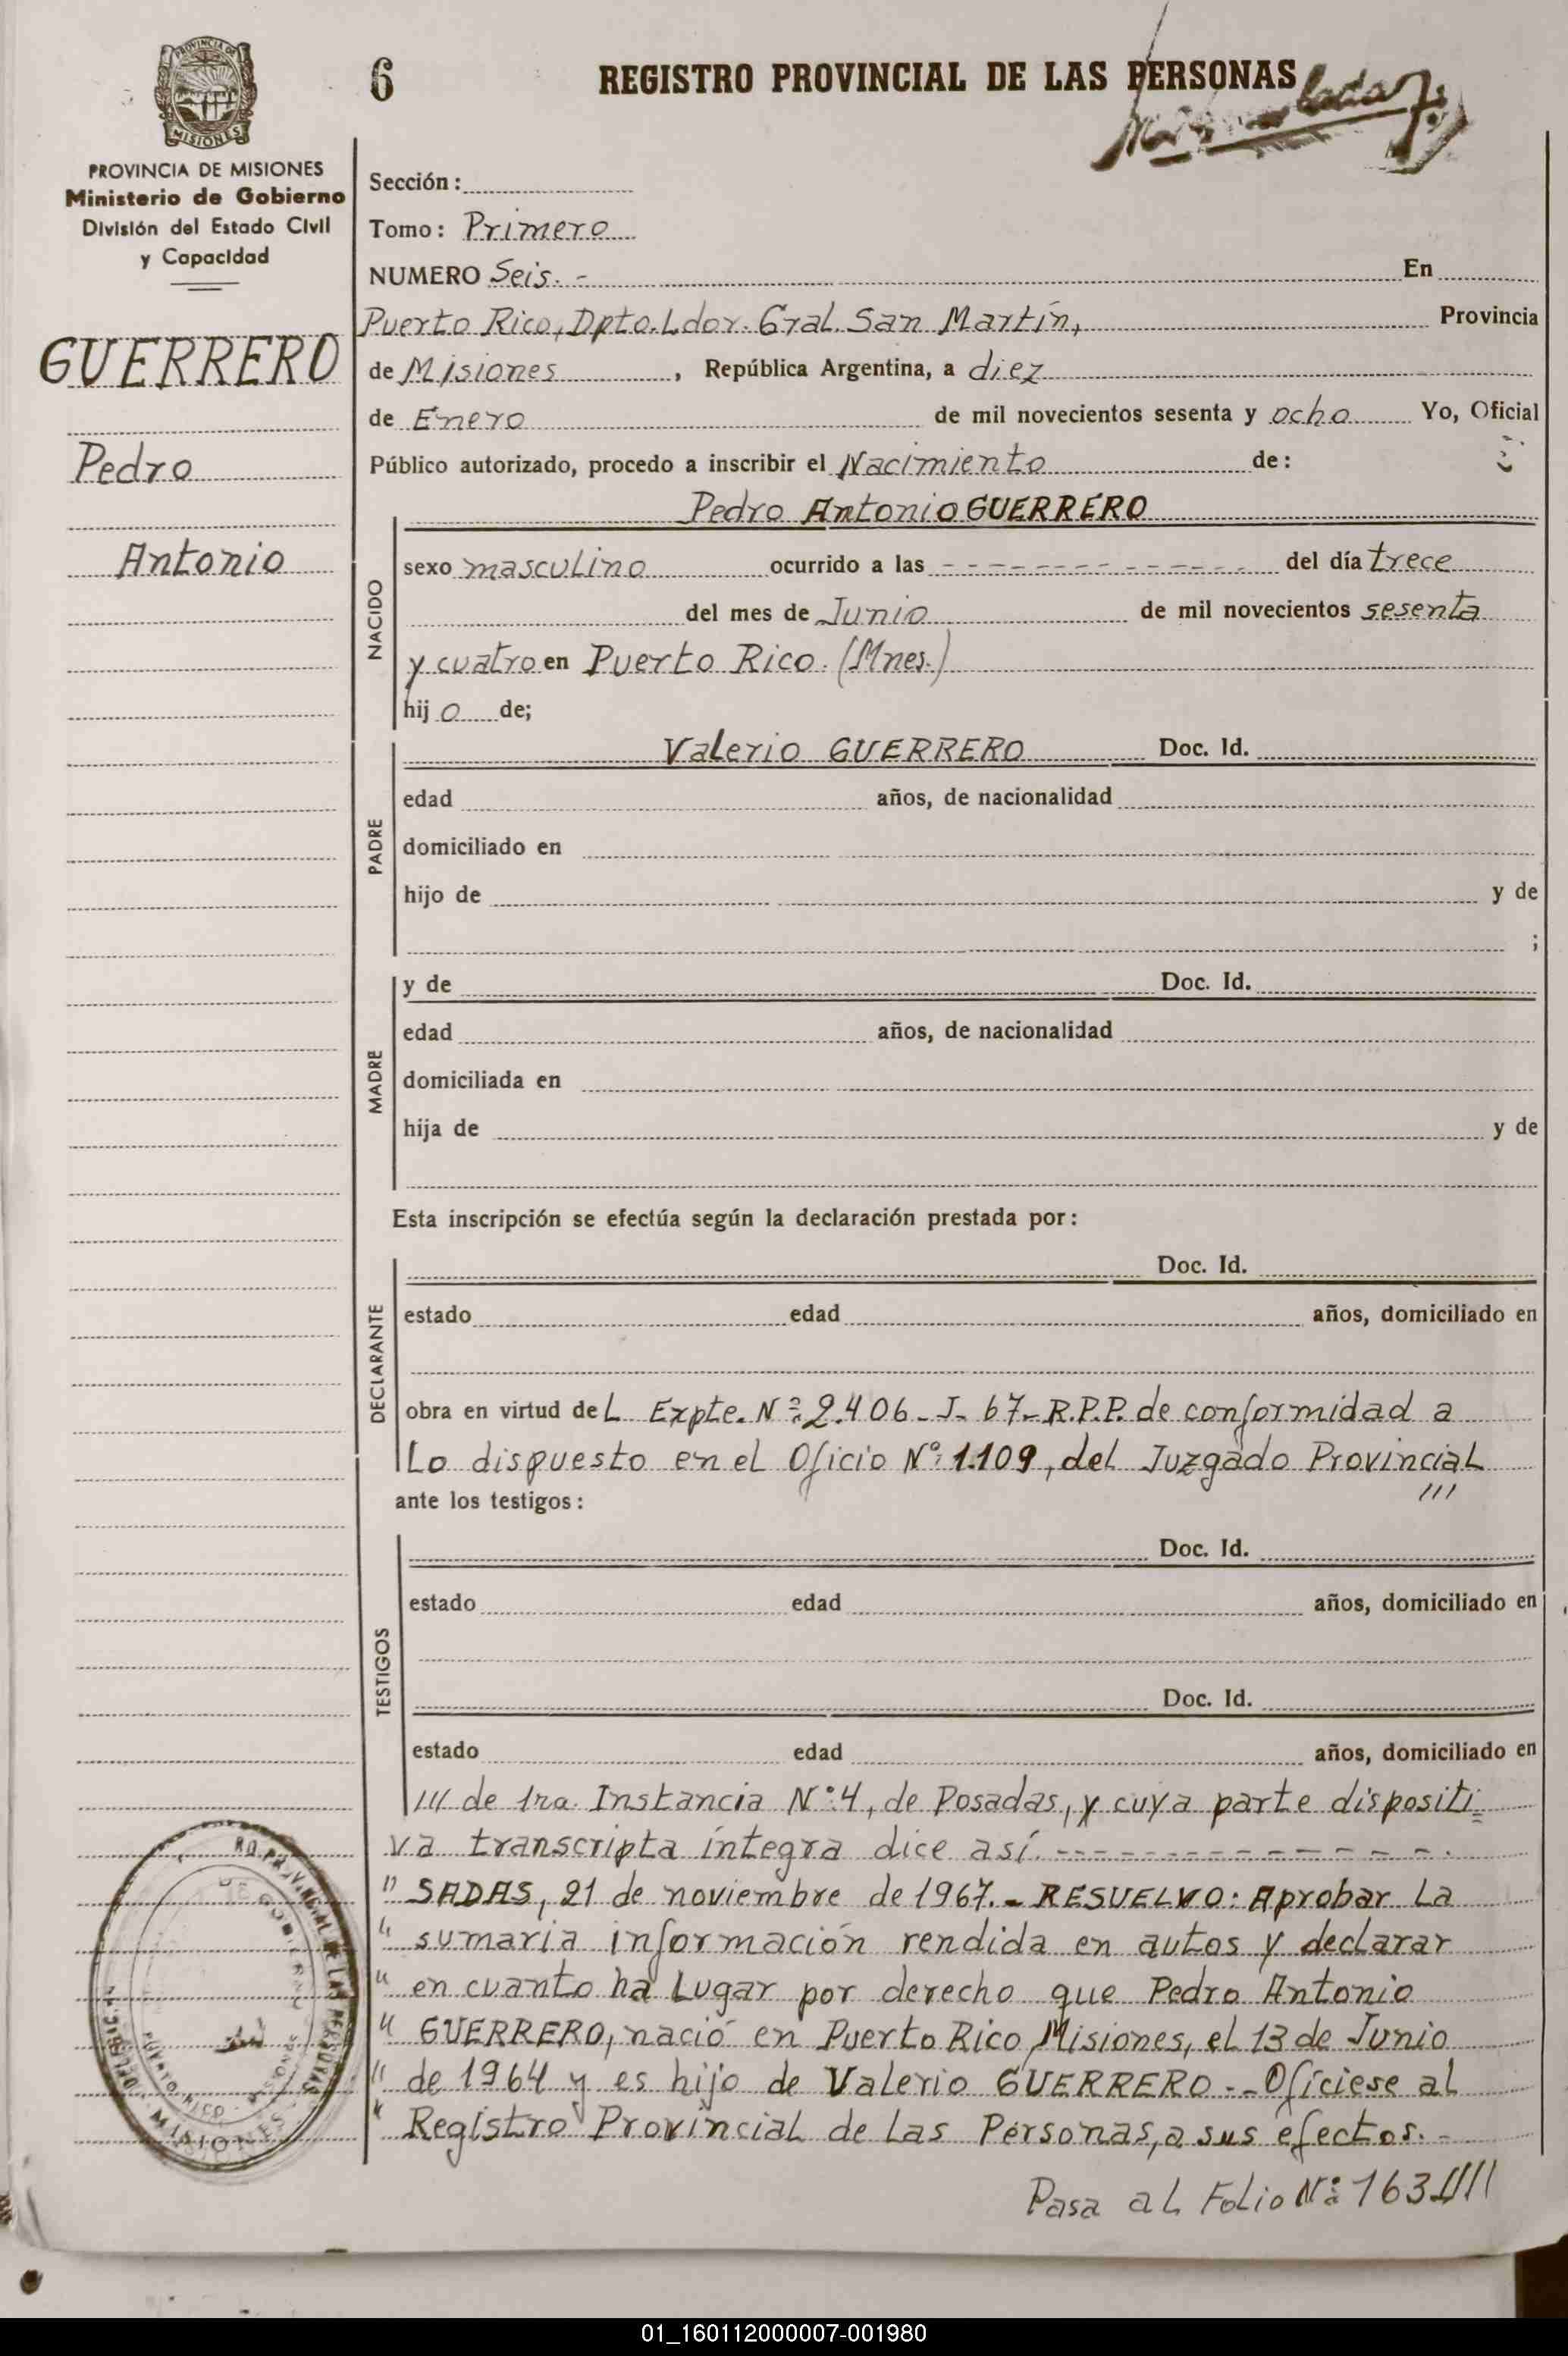 PROVINCIA DE
MISIONES
PROVINCIA DE MISIONES
Ministerio de Gobierno
División del Estado Civil
y Capacidad
GUERRERO
Pedro
Antonio
6
REGISTRO PROVINCIAL DE LAS PERSONAS
Sección:
Tomo: Primero
NUMERO Seis.- En
Puerto Rico, Dpto. Ldor. Gral. San Martín, Provincia
de Misiones, República Argentina, a diez
de Enero de mil novecientos sesenta y ocho Yo, Oficial
Público autorizado, procedo a inscribir el Nacimiento de:
Pedro Antonio GUERRERO
NACIDO
sexo masculino ocurrido a las - - - - - - - - - - - - - - del día trece
del mes de Junio de mil novecientos sesenta
y cuatro en Puerto Rico. (Mnes.)
hij o de;
PADRE
Valerio GUERRERO Doc. Id.
edad años, de nacionalidad
domiciliado en
hijo de y de
;
MADRE
y de Doc. Id.
edad años, de nacionalidad
domiciliada en
hija de y de
Esta inscripción se efectúa según la declaración prestada por:
DECLARANTE
Doc. Id.
estado edad años, domiciliado en
obra en virtud de L Expte. Nº 2.406-J-67-R.P.P. de conformidad a
Lo dispuesto en el Oficio Nº 1.109, del Juzgado Provincial
///
ante los testigos:
TESTIGOS
Doc. Id.
estado edad años, domiciliado en
Doc. Id.
estado edad años, domiciliado en
/// de 1ra. Instancia Nº 4, de Posadas, y cuya parte dispositi=
va transcripta íntegra dice así. - - - - - - - - - - - - -.
" SADAS, 21 de noviembre de 1967.- RESUELVO: Aprobar la
" sumaria información rendida en autos y declarar
" en cuanto ha Lugar por derecho que Pedro Antonio
" GUERRERO, nació en Puerto Rico, Misiones, el 13 de Junio
" de 1964 y es hijo de Valerio GUERRERO.-Ofíciese al
" Registro Provincial de las Personas, a sus efectos.-
Pasa al Folio Nº 163////
PUERTO RICO - MISIONES
MISIONES
01_160112000007-001980